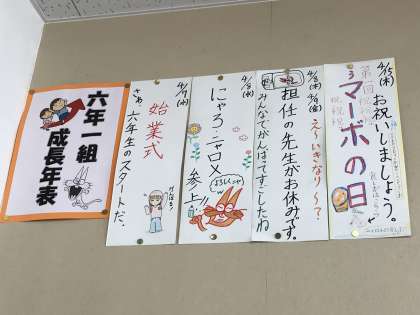 六年一組
成長年表
4/7(火)
始業式
さぁ、六年生のスタートだ。
がんばる!
4/8(水)
にゃろ・ニャロメ
参上!!
4/8(水)
4/9(金)
え〜いきなり〜?
担任の先生がお休みです。
みんなでがんばってすごしたね
4/15(水)
お祝いしましょう。
マーボの日